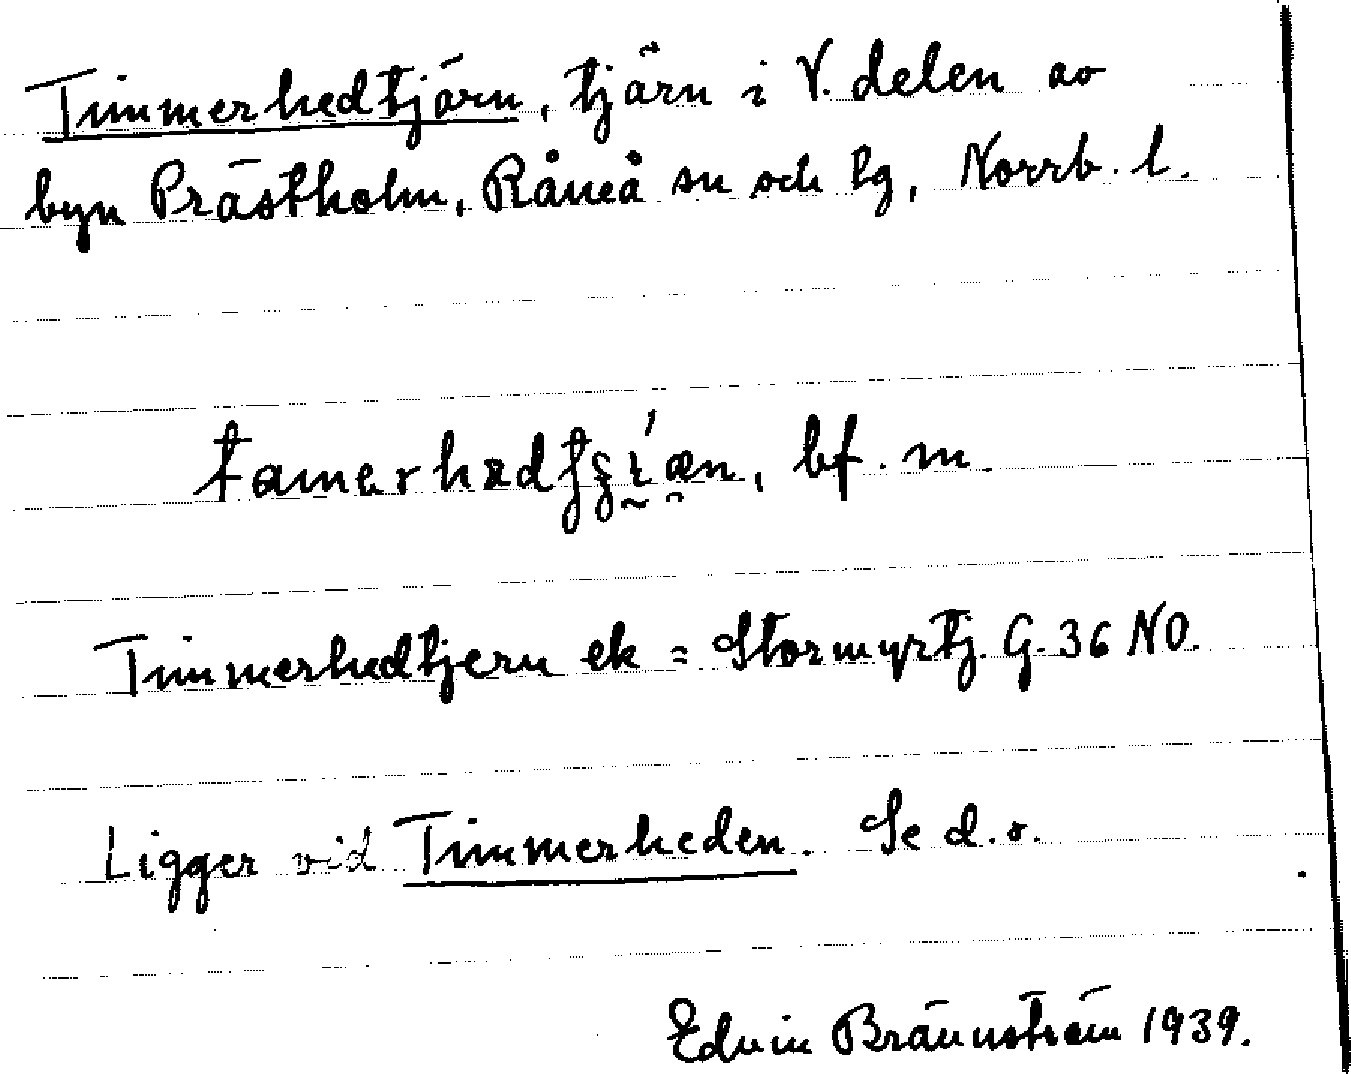 Timmerhedtjärn, tjärn i V. delen av
byn Prästholm, Råneå sn och tg, Norrb. l.
bf. m.
Timmerhedtjern ek = Stormyrtj. G. 36 NO.
Ligger vid Timmerheden. Se d. o.
Edvin Brännström 1939.